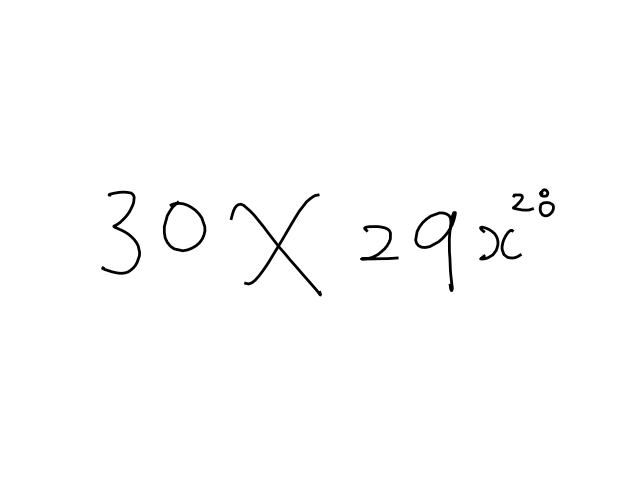 30 × 29x²⁸